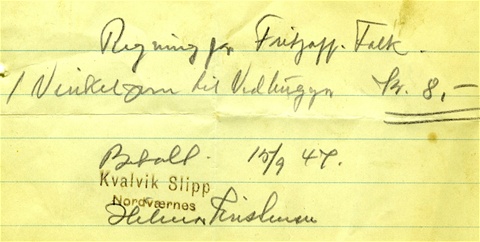 Regning for Fritjoff. Falk.
1 Vinkeljern til Vedhugger kr. 8,-
Betalt. 15/9 47.
Kvalvik Slipp
Nordværnes